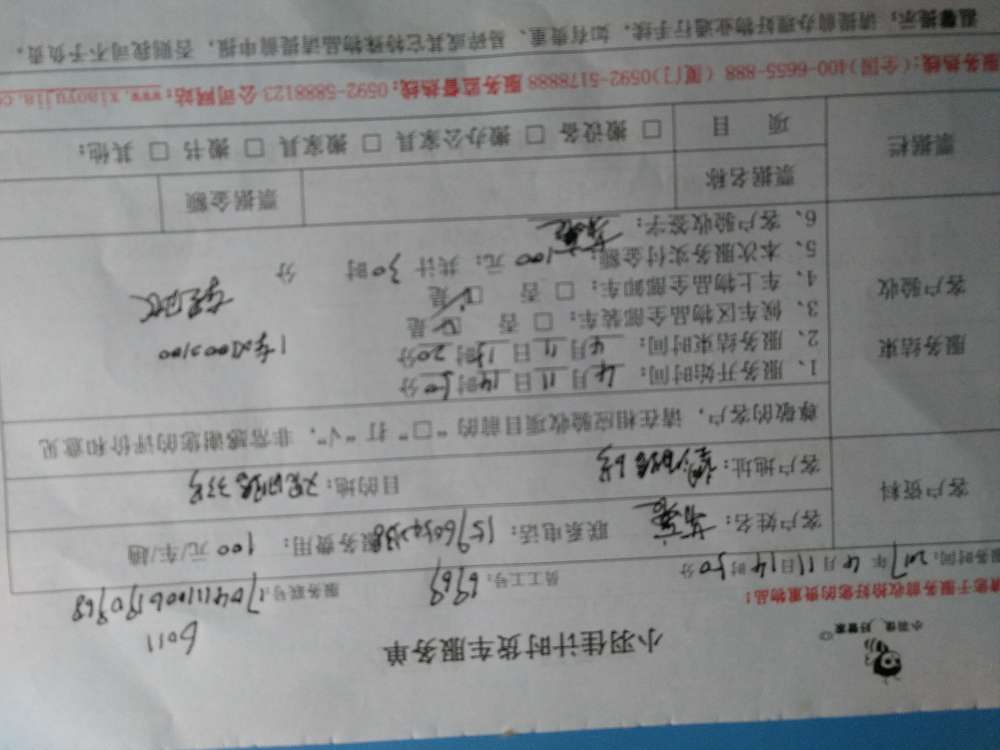 小羽佳 好管家
小羽佳计时货车服务单
6011
请您于服务前收拾好您的贵重物品！
服务时间：2017年4月11日14时50分 员工工号：6969 服务联号：1704111006190968
客户资料
客户姓名： 联系电话： 服务费用：100元/车/趟
客户地址： 目的地：
尊敬的客户，请在相应验收项目前的“□”打“√”，非常感谢您的评价和意见
服务结束
客户验收
1、服务开始时间：4月11日14时50分
2、服务结束时间：4月11日 时20分
3、候车区物品全部装车：□ 否 ☑ 是
4、车上物品全部卸车：□ 否 ☑ 是
5、本次服务实付金额：100元；共计30时 分
6、客户验收签字：
票据栏
票据名称 票据金额
项 目 □ 搬设备 □ 搬办公家具 □ 搬家具 □ 搬书 □ 其他：
服务热线：(全国)400-6655-888 (厦门)0592-5178888 服务监督热线：0592-5888123 公司网站：www.xiaoyujia.co
温馨提示：请提前办理好物业通行手续，如有贵重、易碎或其它特殊物品请提前申报，否则我司不予负责。